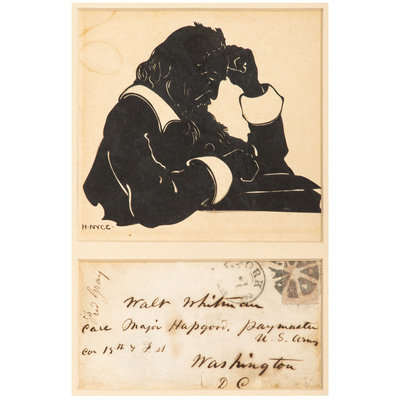 H·NYCE·
Fred Gray
Walt Whitman
Care Major Hapgood, paymaster
U. S. Army
cor 15th & F st
Washington
D C